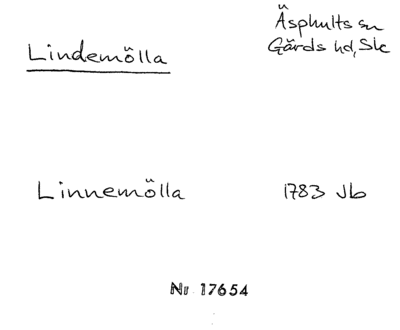 Lindemölla
Äsphults sn
Gärds hd, Sk
Linnemölla 1783 Jb
Nr 17654